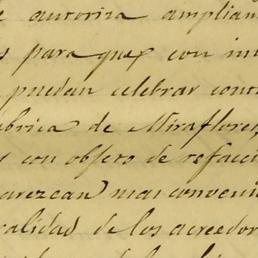 autoriza amplian
para que con in
puedan celebrar cont
abrica de Miraflores
con objeto de refacci
arezcan mas conveni
alidad de los acreedor